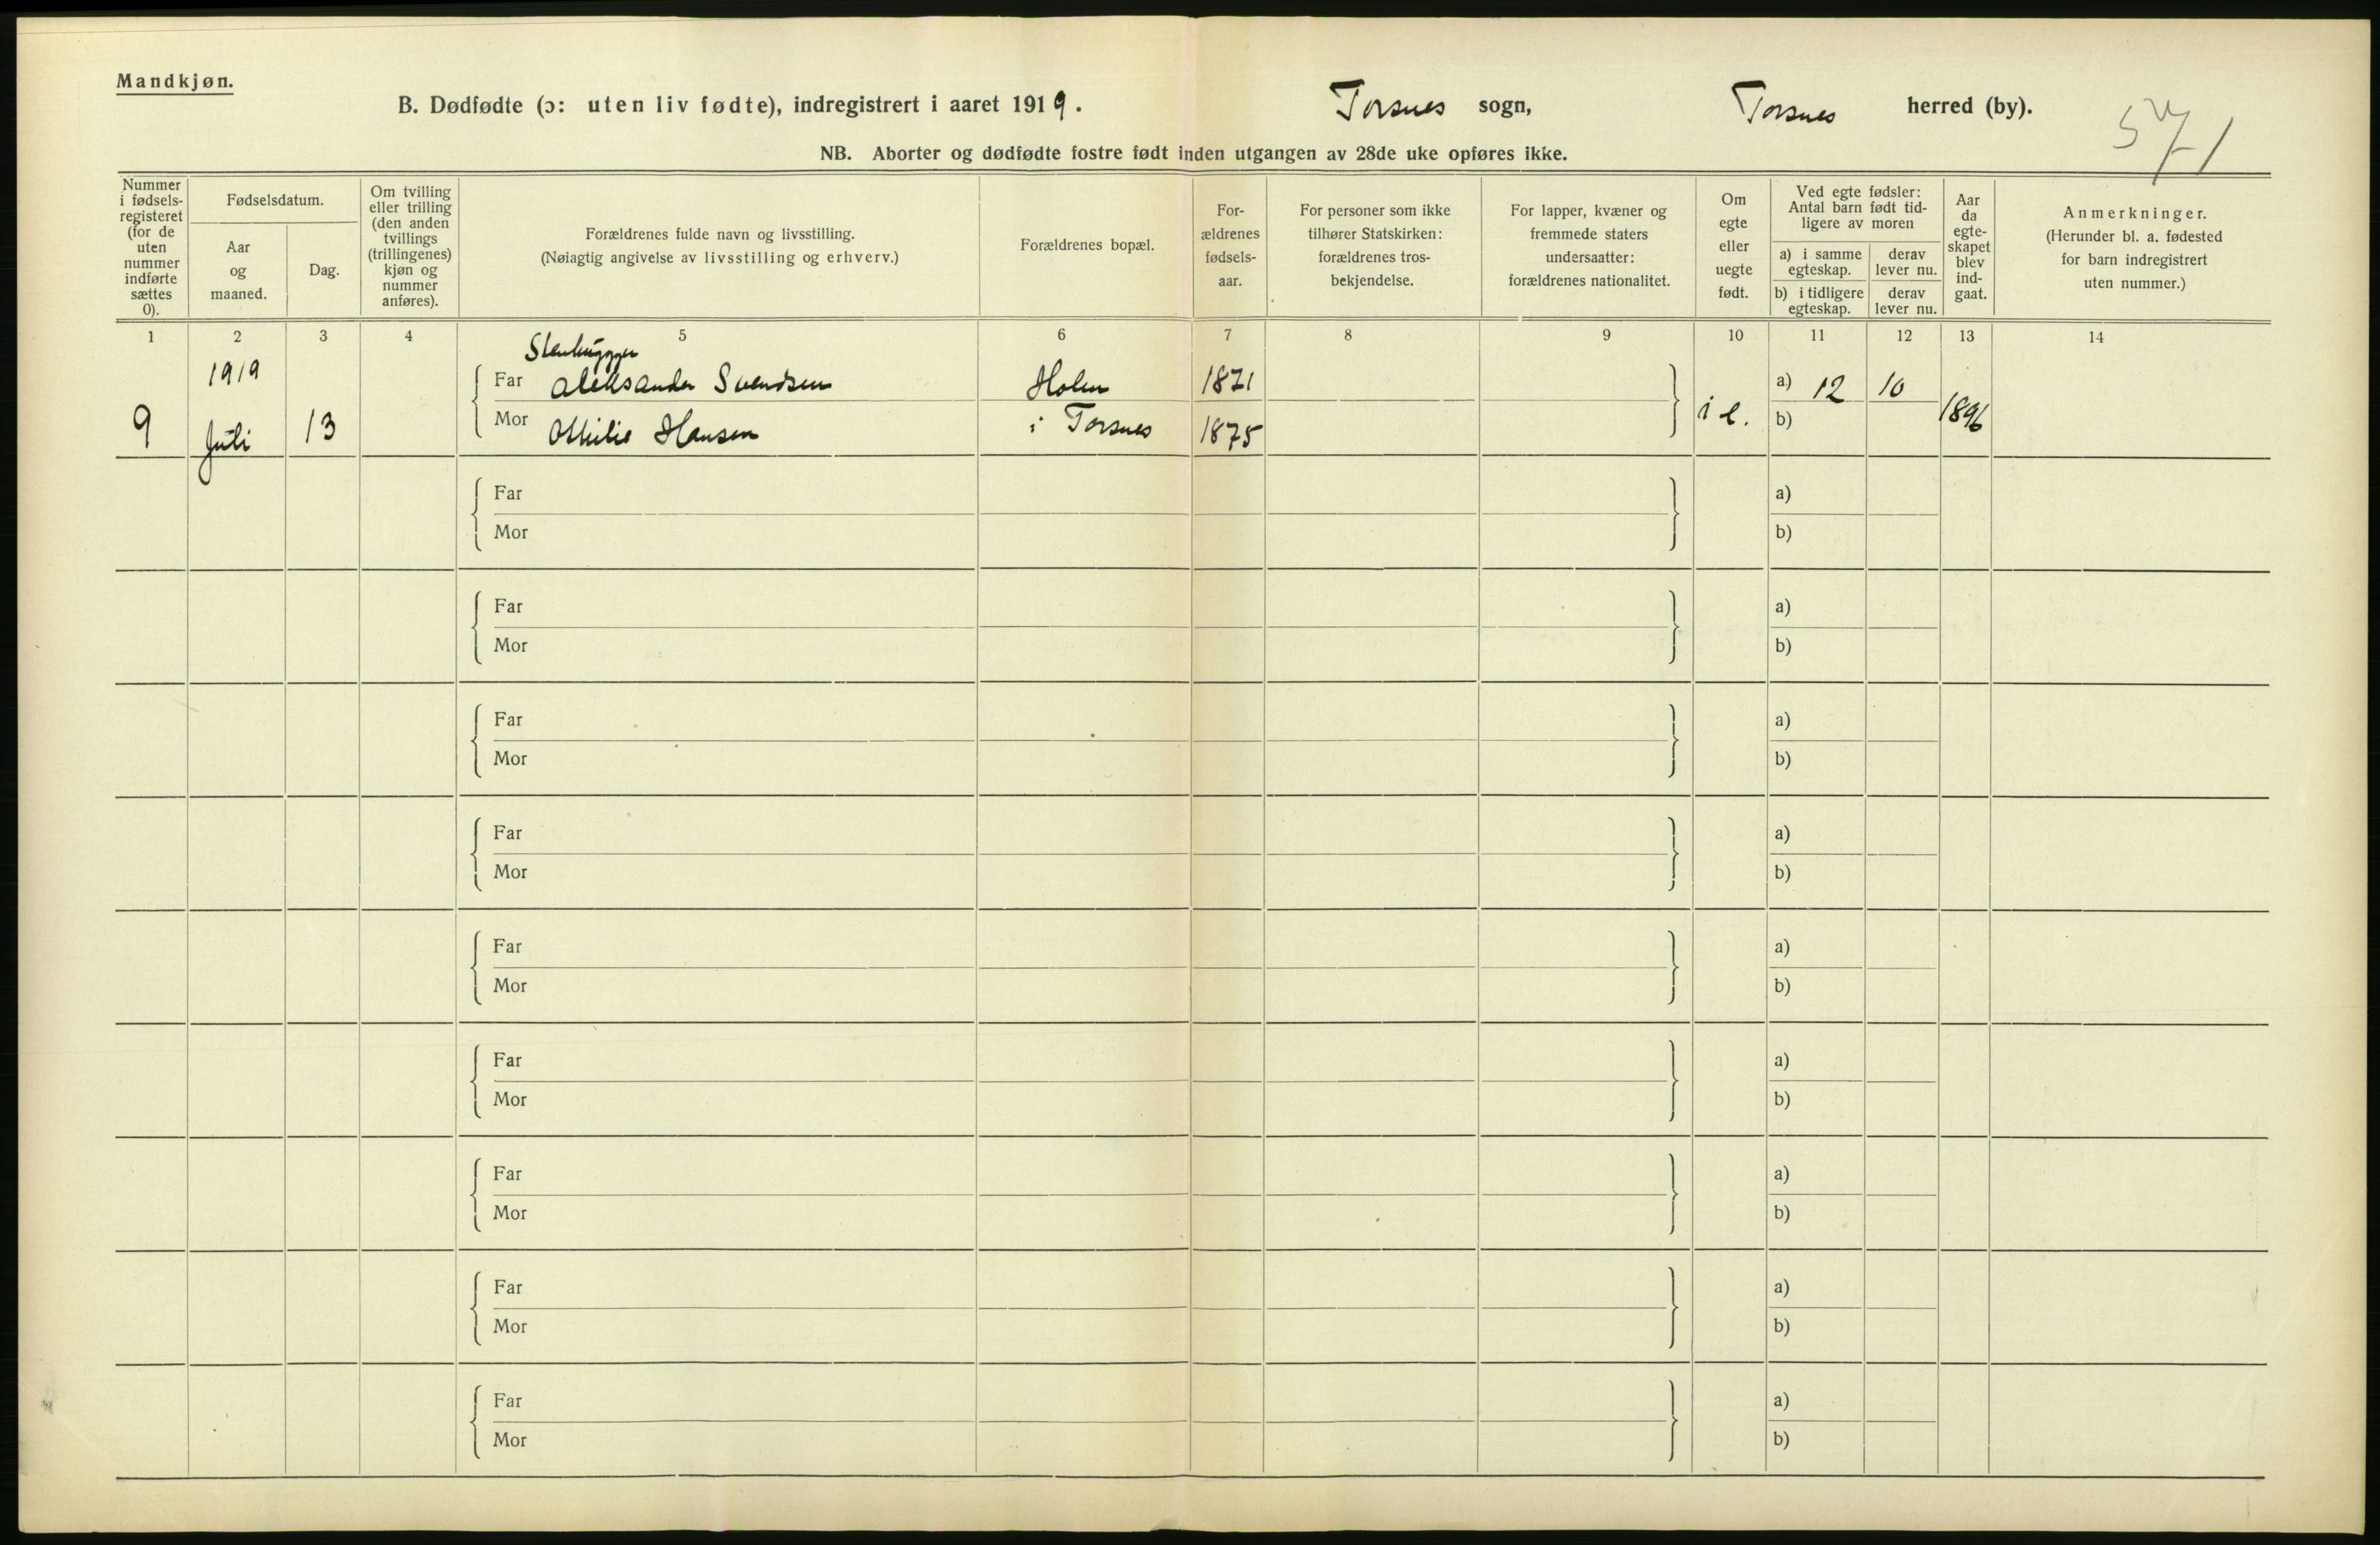 Mandkjøn.
B. Dødfødte (ɔ: uten liv fødte), indregistrert i aaret 1919. Torsnes sogn, Torsnes herred (by).
571
NB. Aborter og dødfødte fostre født inden utgangen av 28de uke opføres ikke.
Nummer i fødsels-registeret (for de uten nummer indførte sættes 0).
Fødselsdatum.
Aar og maaned.
Dag.
Om tvilling eller trilling (den anden tvillings (trillingenes) kjøn og nummer anføres).
Forældrenes fulde navn og livsstilling.
(Nøiagtig angivelse av livsstilling og erhverv.)
Forældrenes bopæl.
For-ældrenes fødsels-aar.
For personer som ikke tilhører Statskirken: forældrenes tros-bekjendelse.
For lapper, kvæner og fremmede staters undersaatter: forældrenes nationalitet.
Om egte eller uegte født.
Ved egte fødsler: Antal barn født tid-ligere av moren
a) i samme egteskap.
derav lever nu.
b) i tidligere egteskap.
derav lever nu.
Aar da egte-skapet blev ind-gaat.
Anmerkninger.
(Herunder bl. a. fødested for barn indregistrert uten nummer.)
1 2 3 4 5 6 7 8 9 10 11 12 13 14
Stenhugger
1919 Far Aleksander Svendsen Holen 1871 a) 12 10
9 Juli 13 Mor Othilie Hansen i Torsnes 1875 i e. b) 1896
Far a)
Mor b)
Far a)
Mor b)
Far a)
Mor b)
Far a)
Mor b)
Far a)
Mor b)
Far a)
Mor b)
Far a)
Mor b)
Far a)
Mor b)
Far a)
Mor b)